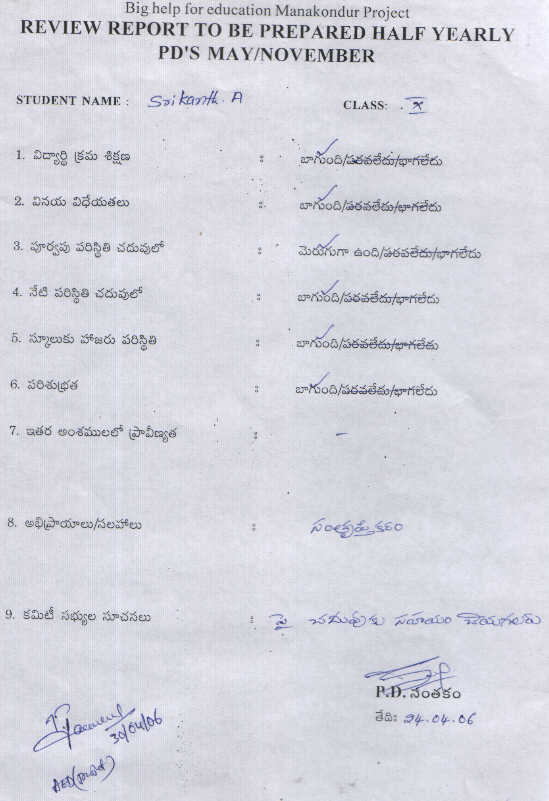 Big help for education Manakondur Project
REVIEW REPORT TO BE PREPARED HALF YEARLY
PD'S MAY/NOVEMBER
STUDENT NAME : Srikanth. A CLASS: . X
1. విద్యార్థి క్రమ శిక్షణ : బాగుంది/పరవలేదు/బాగలేదు
2. వినయ విధేయతలు : బాగుంది/పరవలేదు/బాగలేదు
3. పూర్వపు పరిస్థితి చదువులో : మెరుగుగా ఉంది/పరవలేదు/బాగలేదు
4. నేటి పరిస్థితి చదువులో : బాగుంది/పరవలేదు/బాగలేదు
5. స్కూలుకు హాజరు పరిస్థితి : బాగుంది/పరవలేదు/బాగలేదు
6. పరిశుభ్రత : బాగుంది/పరవలేదు/బాగలేదు
7. ఇతర అంశములలో ప్రావీణ్యత : -
8. అభిప్రాయాలు/సలహాలు : సంతృప్తికరం
9. కమిటీ సభ్యుల సూచనలు : పై చదువుకు సహాయం చేయగలరు
P.D. సంతకం
తేదిః 24.04.06
30/04/06